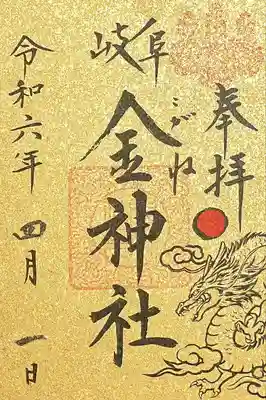 奉拝
岐阜
こがね
金神社
令和六年 四月 一日